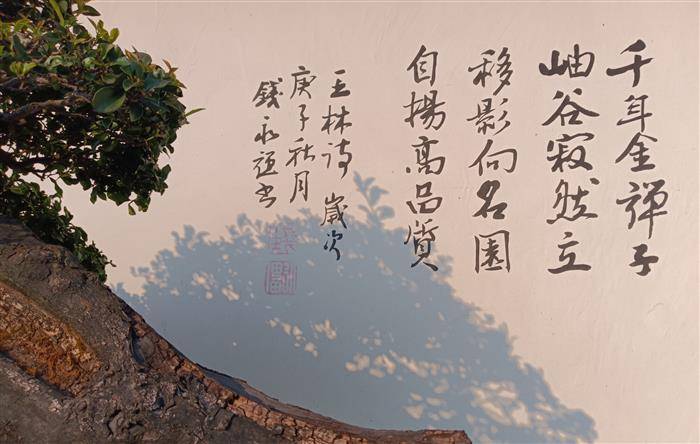 千年金弹子
岫谷寂然立
移影向名園
自揚高品質
王林詩 歲次
庚子秋月
錢永強書